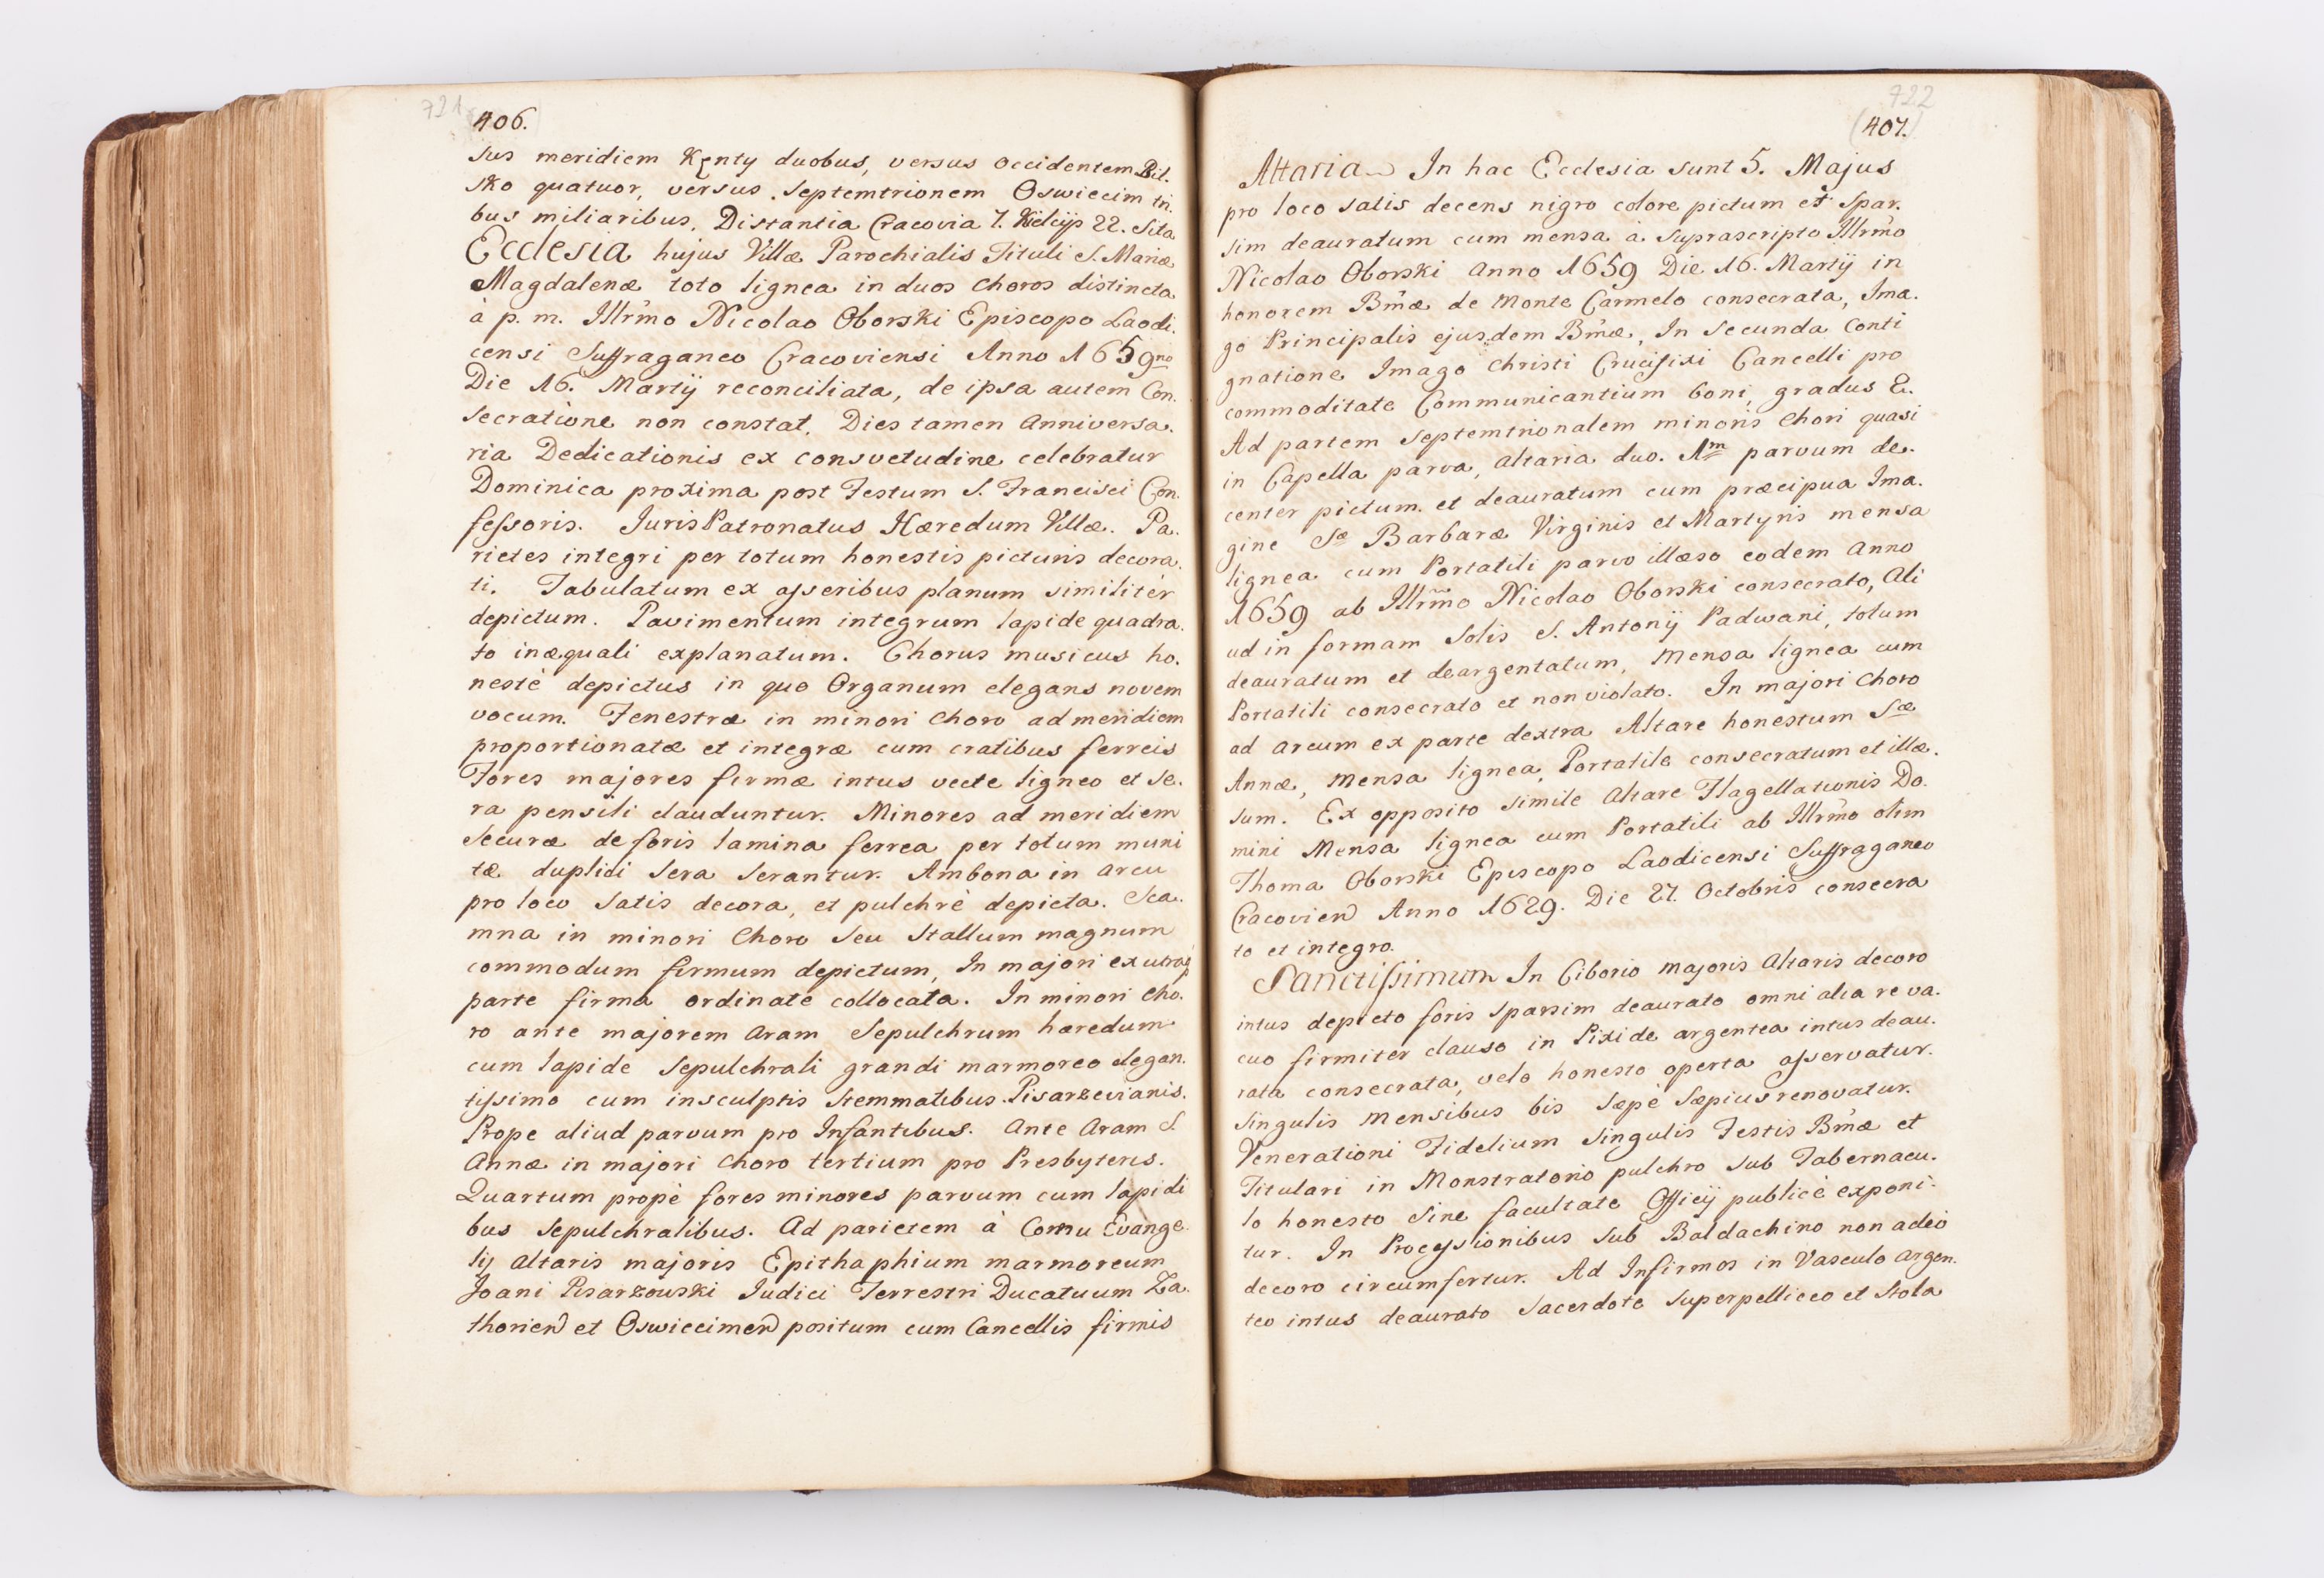 721
406.
sus meridiem Kęnty duobus, versus occidentem Bil.
sko quatuor, versus septemtrionem Oswiecim tri.
bus miliaribus. Distantia Cracovia 7. Kielcijs 22. Sita
Ecclesia hujus Villæ Parochialis Tituli S. Mariæ
Magdalenæ toto lignea in duos choros distincta
à p. m. Illrmo Nicolao Oborski Episcopo Laodi.
censi Suffraganeo Cracoviensi Anno 1659no
Die 16. Martij reconciliata, de ipsa autem Con.
secratione non constat. Dies tamen Anniversa.
ria Dedicationis ex consvetudine celebratur
Dominica proxima post Festum S. Francisci Con.
fessoris. Juris Patronatus Hæredum Villæ. Pa.
rietes integri per totum honestis picturis decora.
ti. Tabulatum ex asseribus planum similitèr
depictum. Pavimentum integrum lapide quadra.
to inæquali explanatum. Chorus musicus ho.
nestè depictus in quo Organum elegans novem
vocum. Fenestræ in minori choro ad meridiem
proportionatæ et integræ cum cratibus ferreis
Fores majores firmæ intus vecte ligneo et se.
ra pensili clauduntur. Minores ad meridiem
securæ de foris lamina ferrea per totum muni
tæ duplici sera serantur. Ambona in arcu
pro loco satis decora, et pulchrè depicta. Sca.
mna in minori Choro seu stallum magnum
commodum firmum depictum, In majori ex utraq
parte firma ordinate collocata. In minori cho.
ro ante majorem aram Sepulchrum hæredum
cum lapide sepulchrali grandi marmoreo elegan.
tissimo cum insculptis stemmatibus Pisarzevianis.
Prope aliud parvum pro Infantibus. Ante Aram S.
Annæ in majori choro tertium pro Presbyteris.
Quartum propè fores minores parvum cum lapidi
bus sepulchralibus. Ad parietem à Cornu Evange.
lij altaris majoris Epithaphium marmoreum
Joani Pisarzowski Iudici Terrestri Ducatuum Za.
thorien et Oswiecimen positum cum Cancellis firmis
722
(407.)
Altaria In hac Ecclesia sunt 5. Majus
pro loco satis decens nigro colore pictum et spar.
sim deauratum cum mensa a suprascripto Illrmo
Nicolao Oborski anno 1659 Die 16. Martij in
honorem Bmæ de Monte Carmelo consecrata, Ima.
go Principalis ejusdem Bmæ, In secunda conti
gnatione Imago Christi Crucifixi Cancelli pro
commoditate Communicantium boni, gradus 2.
Ad partem septemtrionalem minoris chori quasi
in Capella parva, altaria duo. 1m parvum de.
center pictum et deauratum cum præcipua Ima.
gine Sæ Barbaræ Virginis et Martyris mensa
lignea cum Portatili parvo illæso eodem anno
1659 ab Illrmo Nicolao Oborski consecrato, Ali
ud in formam solis S. Antonij Padwani, totum
deauratum et deargentatum, mensa lignea cum
Portatili consecrato et non violato. In majori choro
ad arcum ex parte dextra Altare honestum Sæ
Annæ, mensa lignea, Portatile consecratum et illæ.
sum. Ex opposito simile altare Flagellationis Do.
mini Mensa lignea cum Portatili ab Illrmo olim
Thoma Oborski Episcopo Laodicensi Suffraganeo
Cracovien Anno 1629. Die 27. Octobris consecra
to et integro.
Sanctissimum In Ciborio majoris altaris decoro
intus depicto foris sparsim deaurato omni alia re va.
cuo firmiter clauso in Pixide argentea intus deau.
rata consecrata, velo honesto operta asservatur.
Singulis mensibus bis sæpè sæpius renovatur.
Venerationi Fidelium singulis Festis Bmæ et
Titulari in Monstratorio pulchro sub Tabernacu.
lo honesto sine facultate Officij publicè exponi.
tur. In Processionibus sub Baldachino non adeò
decoro circumfertur. Ad Infirmos in Vasculo argen.
teo intus deaurato sacerdote superpelliceo et stola